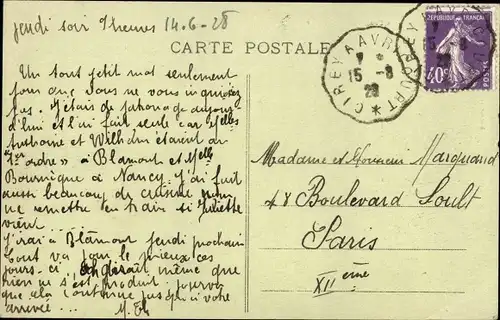 jeudi soir 7 heures 14-6-28
CARTE POSTALE
CIREY A AVRICOURT
15-6
28
RÉPUBLIQUE FRANÇAISE
40c
POSTES
Un tout petit mot seulement
pour que vous ne vous inquiétiez
pas. J'étais de patronage aujour
d'hui et l'ai fait seule car Melles
et Wilhelm étaient de
"1er ordre" à Blamont et Melle
à Nancy. J'ai fait
aussi beaucoup de cuisine
me remettre en train si Juliette
vient...
J'irai à Blâmont jeudi prochain
tout va pour le mieux ces
jours-ci. On dirait même que
rien ne s'est produit, pourvu
que cela continue jusqu'à votre
arrivée...
Madame et Monsieur
48 Boulevard Soult
Paris
XIIème